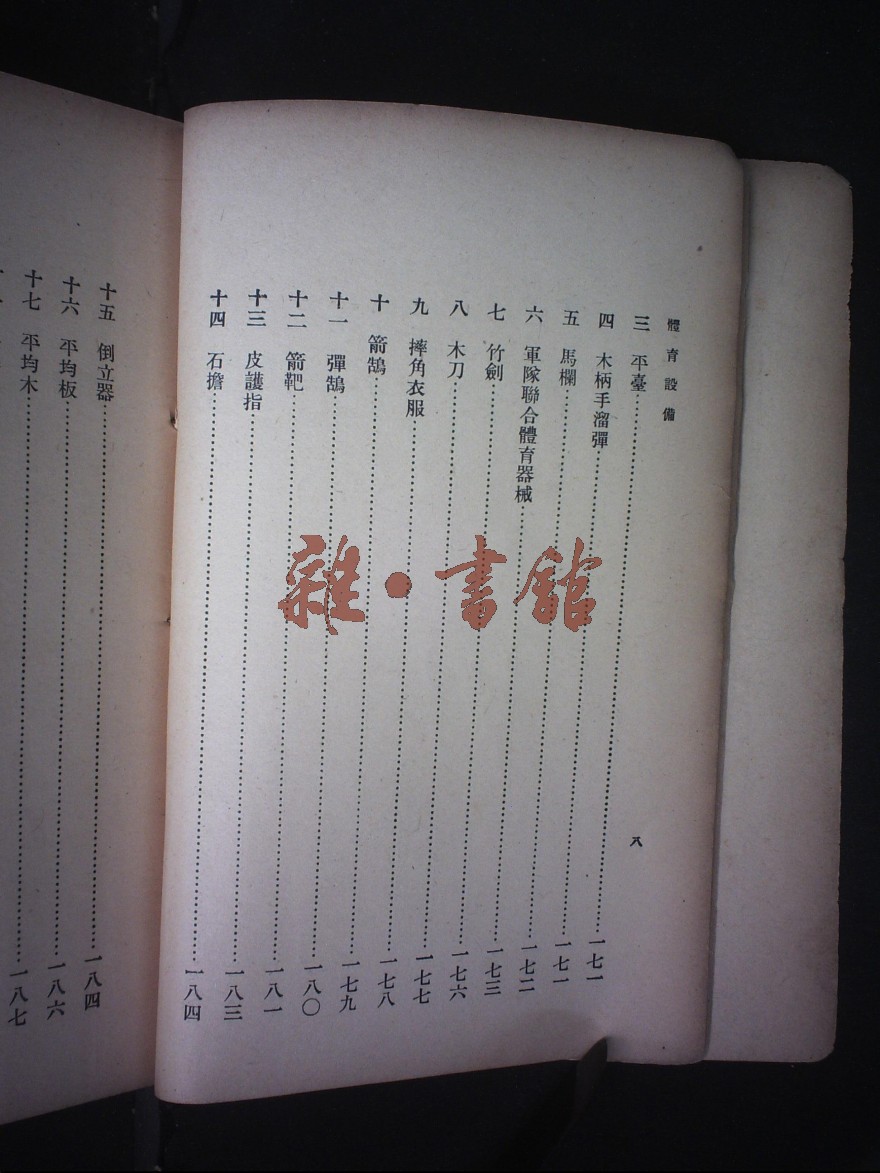 體育設備
八
三 平臺……一七一
四 木柄手溜彈……一七一
五 馬欄……一七二
六 軍隊聯合體育器械……一七三
七 竹劍……一七六
八 木刀……一七七
九 摔角衣服……一七八
十 箭鵠……一七九
十一 彈鵠……一八〇
十二 箭靶……一八一
十三 皮護指……一八三
十四 石擔……一八四
十五 倒立器……一八四
十六 平均板……一八六
十七 平均木……一八七
雜·書館